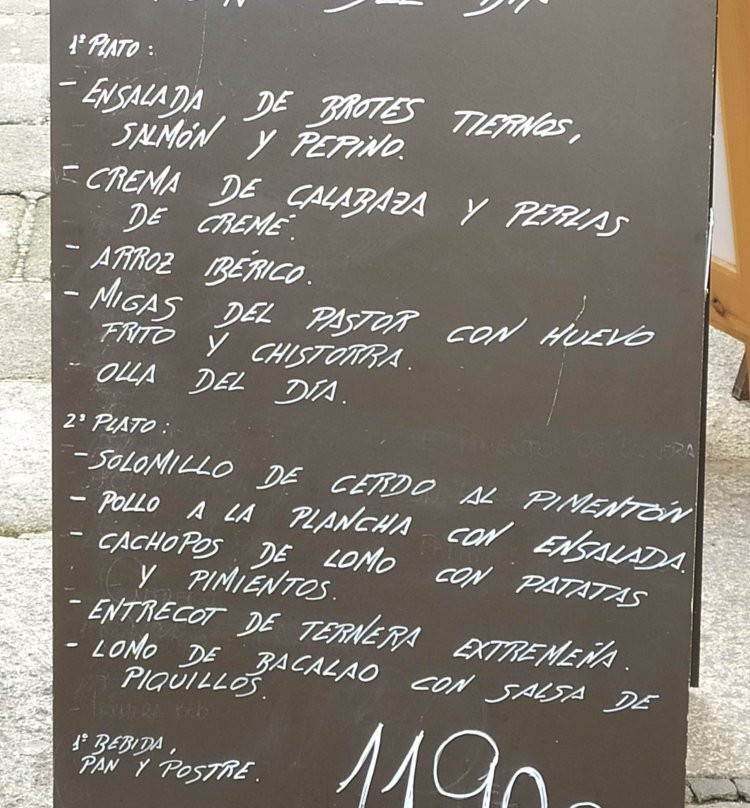 DEL DÍA
1º PLATO:
- ENSALADA DE BROTES TIERNOS,
SALMÓN Y PEPINO.
- CREMA DE CALABAZA Y PERLAS
DE CREME.
- ARROZ IBÉRICO.
- MIGAS DEL PASTOR CON HUEVO
FRITO Y CHISTORRA.
- OLLA DEL DÍA.
2º PLATO:
- SOLOMILLO DE CERDO AL PIMENTÓN
- POLLO A LA PLANCHA CON ENSALADA.
- CACHOPOS DE LOMO CON PATATAS
Y PIMIENTOS.
- ENTRECOT DE TERNERA EXTREMEÑA.
- LOMO DE BACALAO CON SALSA DE
PIQUILLOS.
1º BEBIDA,
PAN Y POSTRE.
11,90